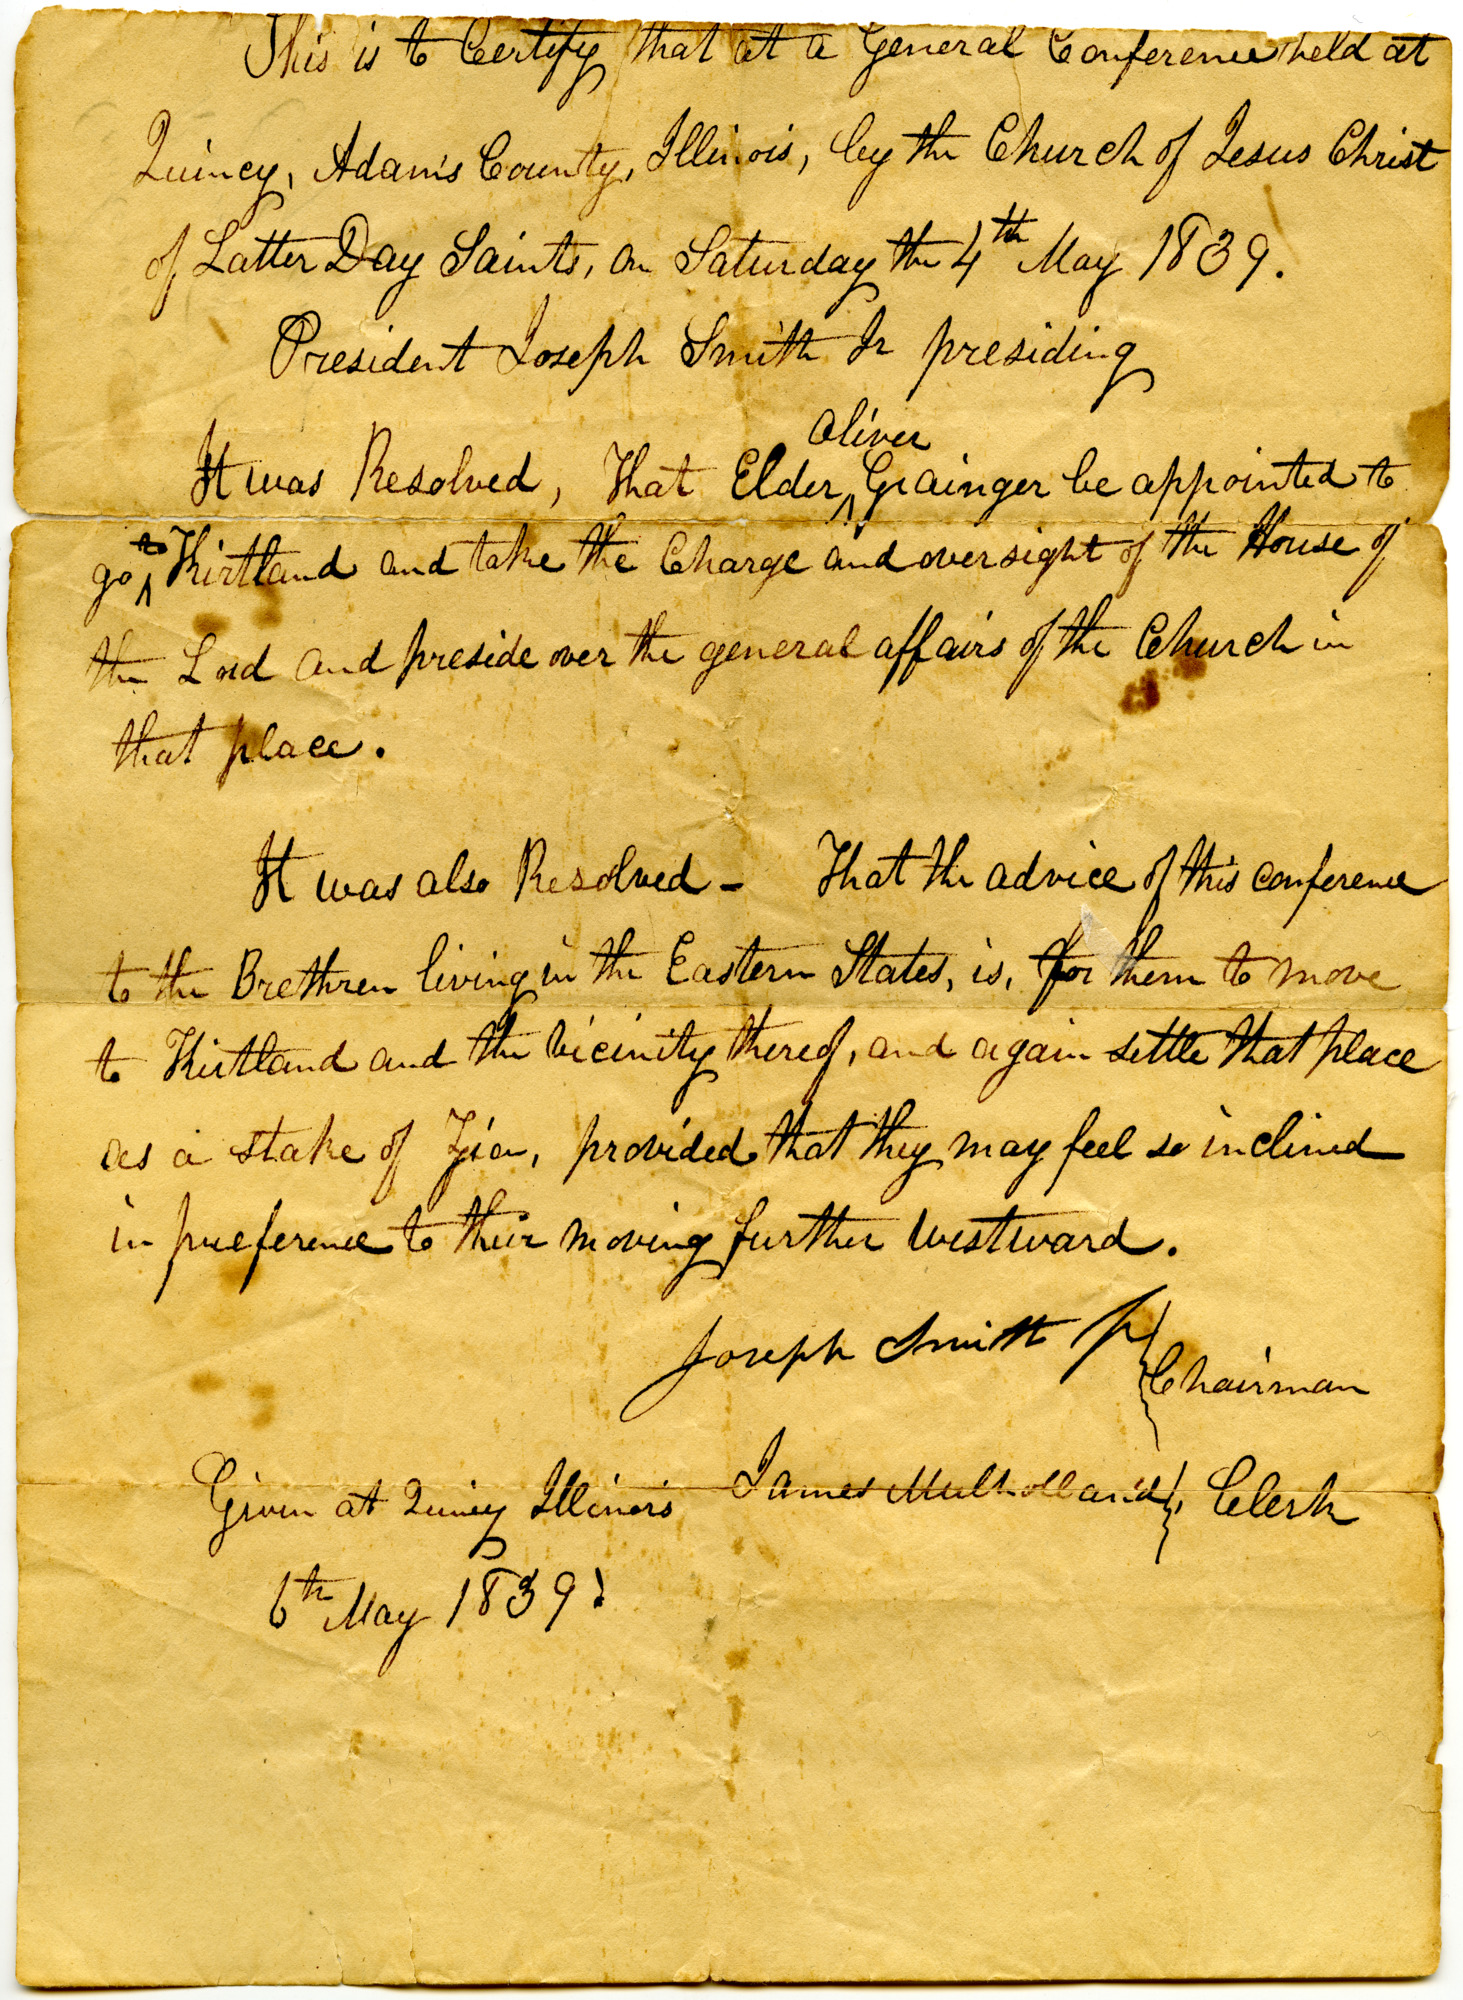 This is to Certify that at a General Conference held at
Quincy, Adams County, Illinois, by the Church of Jesus Christ
of Latter Day Saints, on Saturday the 4th May 1839.
President Joseph Smith Jr presiding
Oliver
It was Resolved, That Elder ^ Grainger be appointed to
to
go ^ Kirtland and take the Charge and oversight of the House of
the Lord and preside over the general affairs of the Church in
that place.
It was also Resolved - That the advice of this conference
to the Brethren living in the Eastern States, is, for them to move
to Kirtland and the vicinity thereof, and again settle that place
as a stake of Zion, provided that they may feel so inclined
in preference to their moving further westward.
Joseph Smith Jr
Chairman
Given at Quincy Illinois James Mulholland, Clerk
6th May 1839